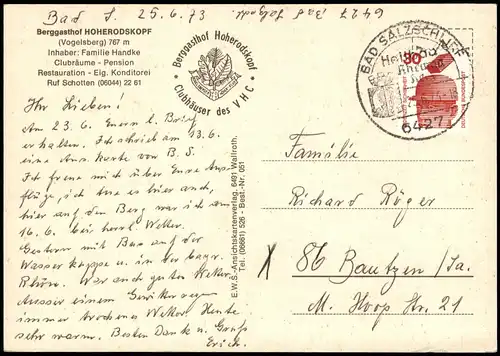 Bad S. 25.6.73
6427 Bad Salzschl.
Berggasthof HOHERODSKOPF
(Vogelsberg) 767 m
Inhaber: Familie Handke
Clubräume - Pension
Restauration - Eig. Konditorei
Ruf Schotten (06044) 22 61
Berggasthof Hoherodskopf
Clubhäuser des VHC
BAD SALZSCHLIRF
6427
80
Ihr Lieben!
Am 23.6. Euern l. Brief
erhalten. Ich schrieb am 13.6.
eine Ans. Karte von B.S.
Ich freue mich über Eure Aus-
flüge, ich tue es hier auch,
hier auf den Berg war ich am
16.6. bei herrl. Wetter.
Gestern mit Bus auf der
Wasserkuppe u. in der bayr.
Rhön. War auch gutes Wetter.
Ausser einem Gewitterregen
immer trocknes Wetter. Heute
sehr warm. Besten Dank u. Gruß
Erich.
E.W.S.-Ansichtskartenverlag, 6491 Wallroth
Tel. (06661) 526 - Best.-Nr. 051
Familie
Richard Röger
X 86 Bautzen/Sa.
M. Hoop Str. 21